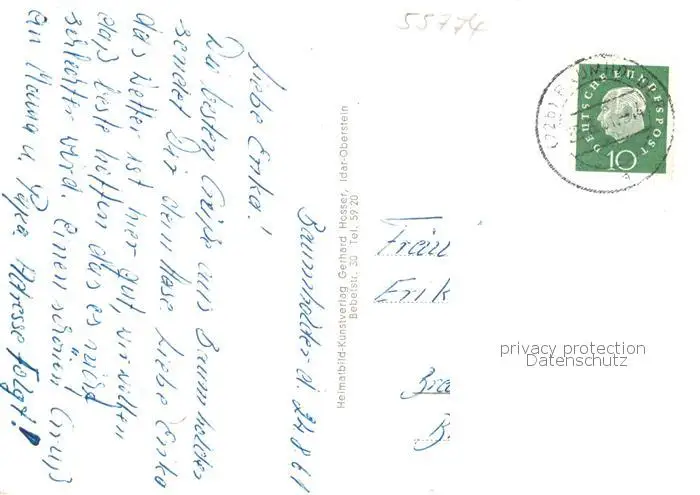 55774
Baumholder d. 24 8 61
Liebe Erika!
Die besten Grüße aus Baumholder
sendet Dir dein Liebe Erika
das Wetter ist hier gut, wir wollten
das beste hoffen das es nicht
schlechter wird. einen schönen Gruß
an Mama u. Papa Adresse folgt!
Heimatbild-Kunstverlag Gerhard Hosser, Idar-Oberstein
Bebelstr. 30 Tel. 59 20
DEUTSCHE BUNDESPOST
10
(22b) BAUMHO
Frau
Erik
Bra
B
privacy protection
Datenschutz